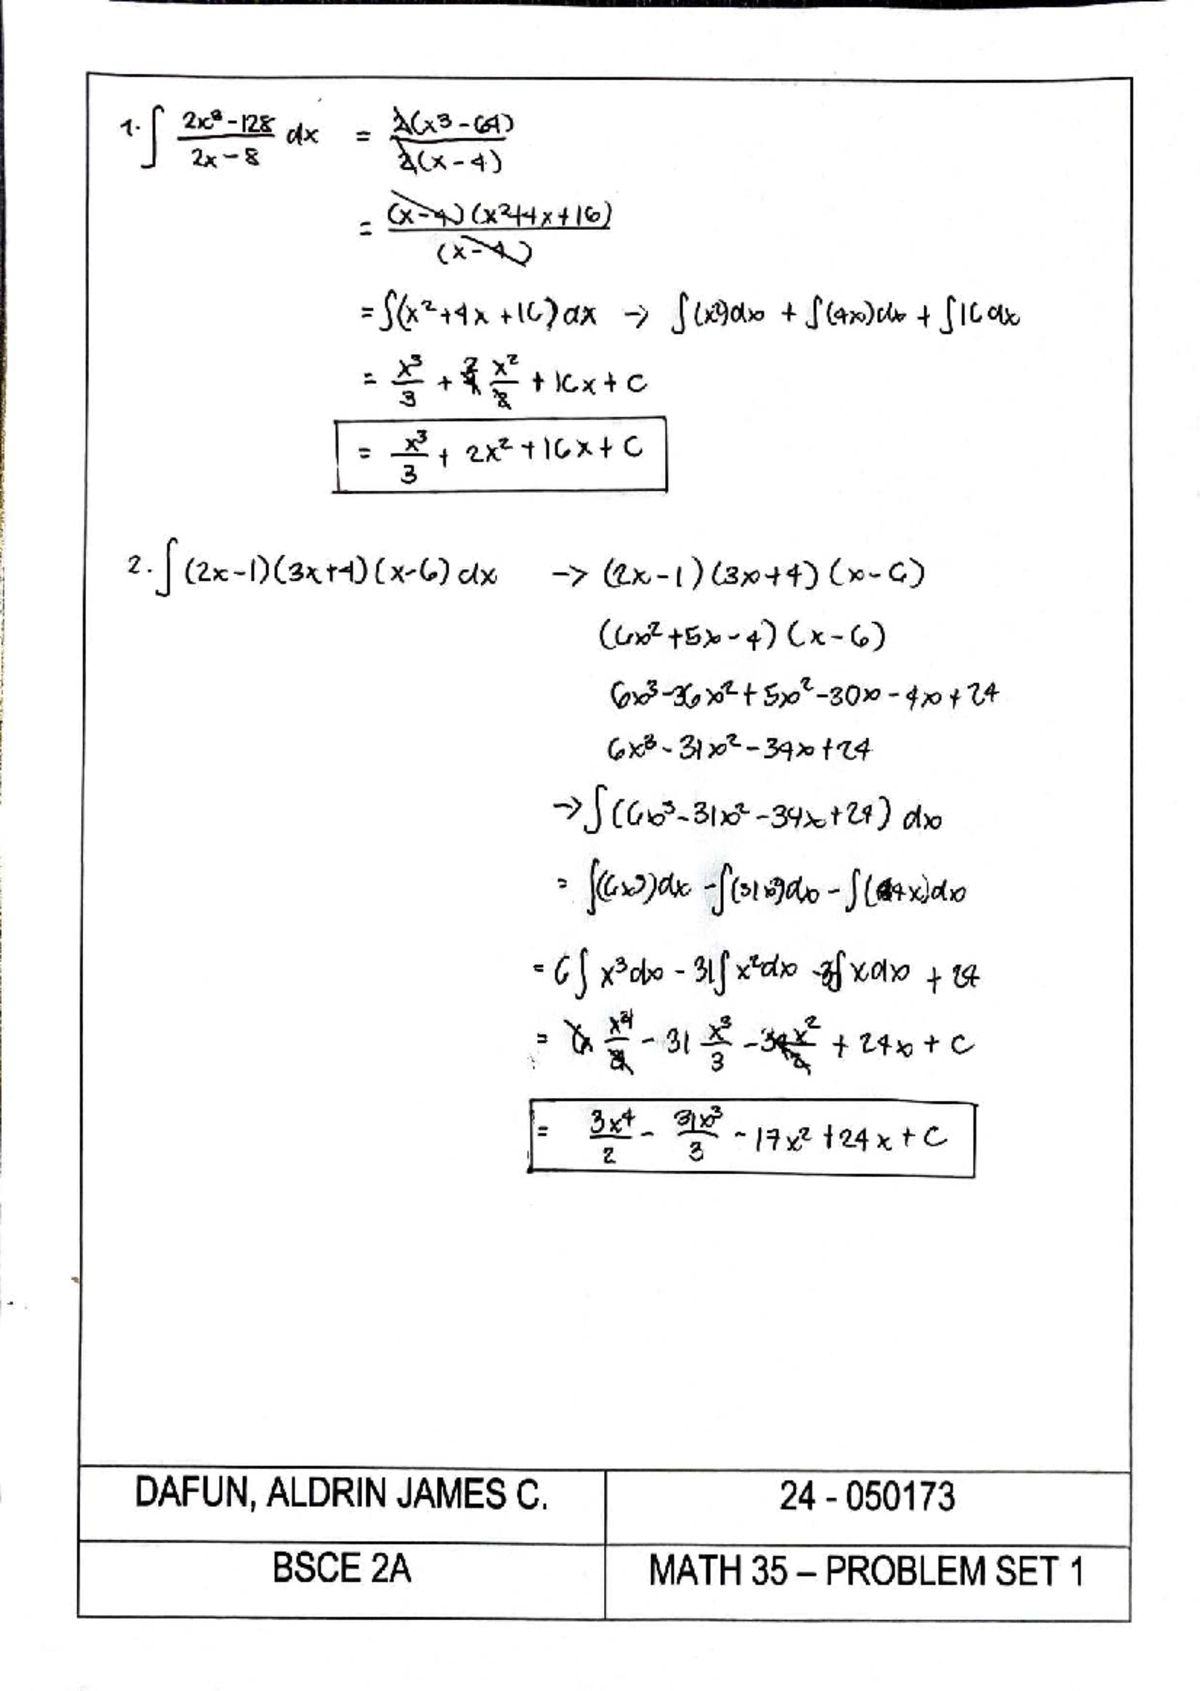 1. ∫ (2x³ - 128)/(2x - 8) dx = 2(x³ - 64)/2(x - 4)
= (x-4)(x²+4x+16)/(x-4)
= ∫(x² + 4x + 16) dx → ∫(x²)dx + ∫(4x)dx + ∫16 dx
= x³/3 + 4 x²/2 + 16x + C
= x³/3 + 2x² + 16x + C
2. ∫ (2x-1)(3x+4)(x-6) dx → (2x-1)(3x+4)(x-6)
(6x² + 5x - 4)(x - 6)
6x³ - 36x² + 5x² - 30x - 4x + 24
6x³ - 31x² - 34x + 24
→ ∫(6x³ - 31x² - 34x + 24) dx
= ∫(6x³)dx - ∫(31x²)dx - ∫(34x)dx
= 6∫x³dx - 31∫x²dx - 34∫xdx + 24
= 6 x⁴/4 - 31 x³/3 - 34 x²/2 + 24x + C
= 3x⁴/2 - 31x³/3 - 17x² + 24x + C
DAFUN, ALDRIN JAMES C. 24 - 050173
BSCE 2A MATH 35 – PROBLEM SET 1